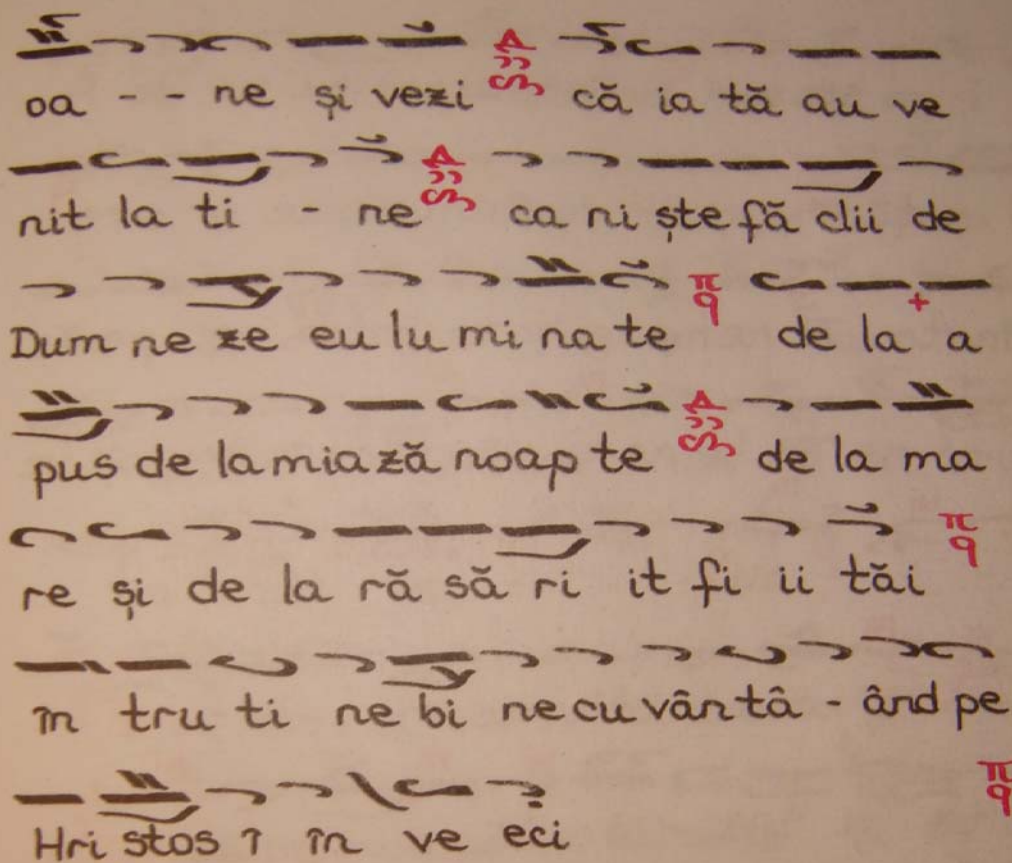 oa - - ne și vezi că ia tă au ve
nit la ti - ne ca ni ște fă clii de
Dum ne ze eu lu mi na te de la a
pus de la mia ză noap te de la ma
re și de la ră să ri it fi ii tăi
în tru ti ne bi ne cu vân tâ - ând pe
Hri stos î în ve eci